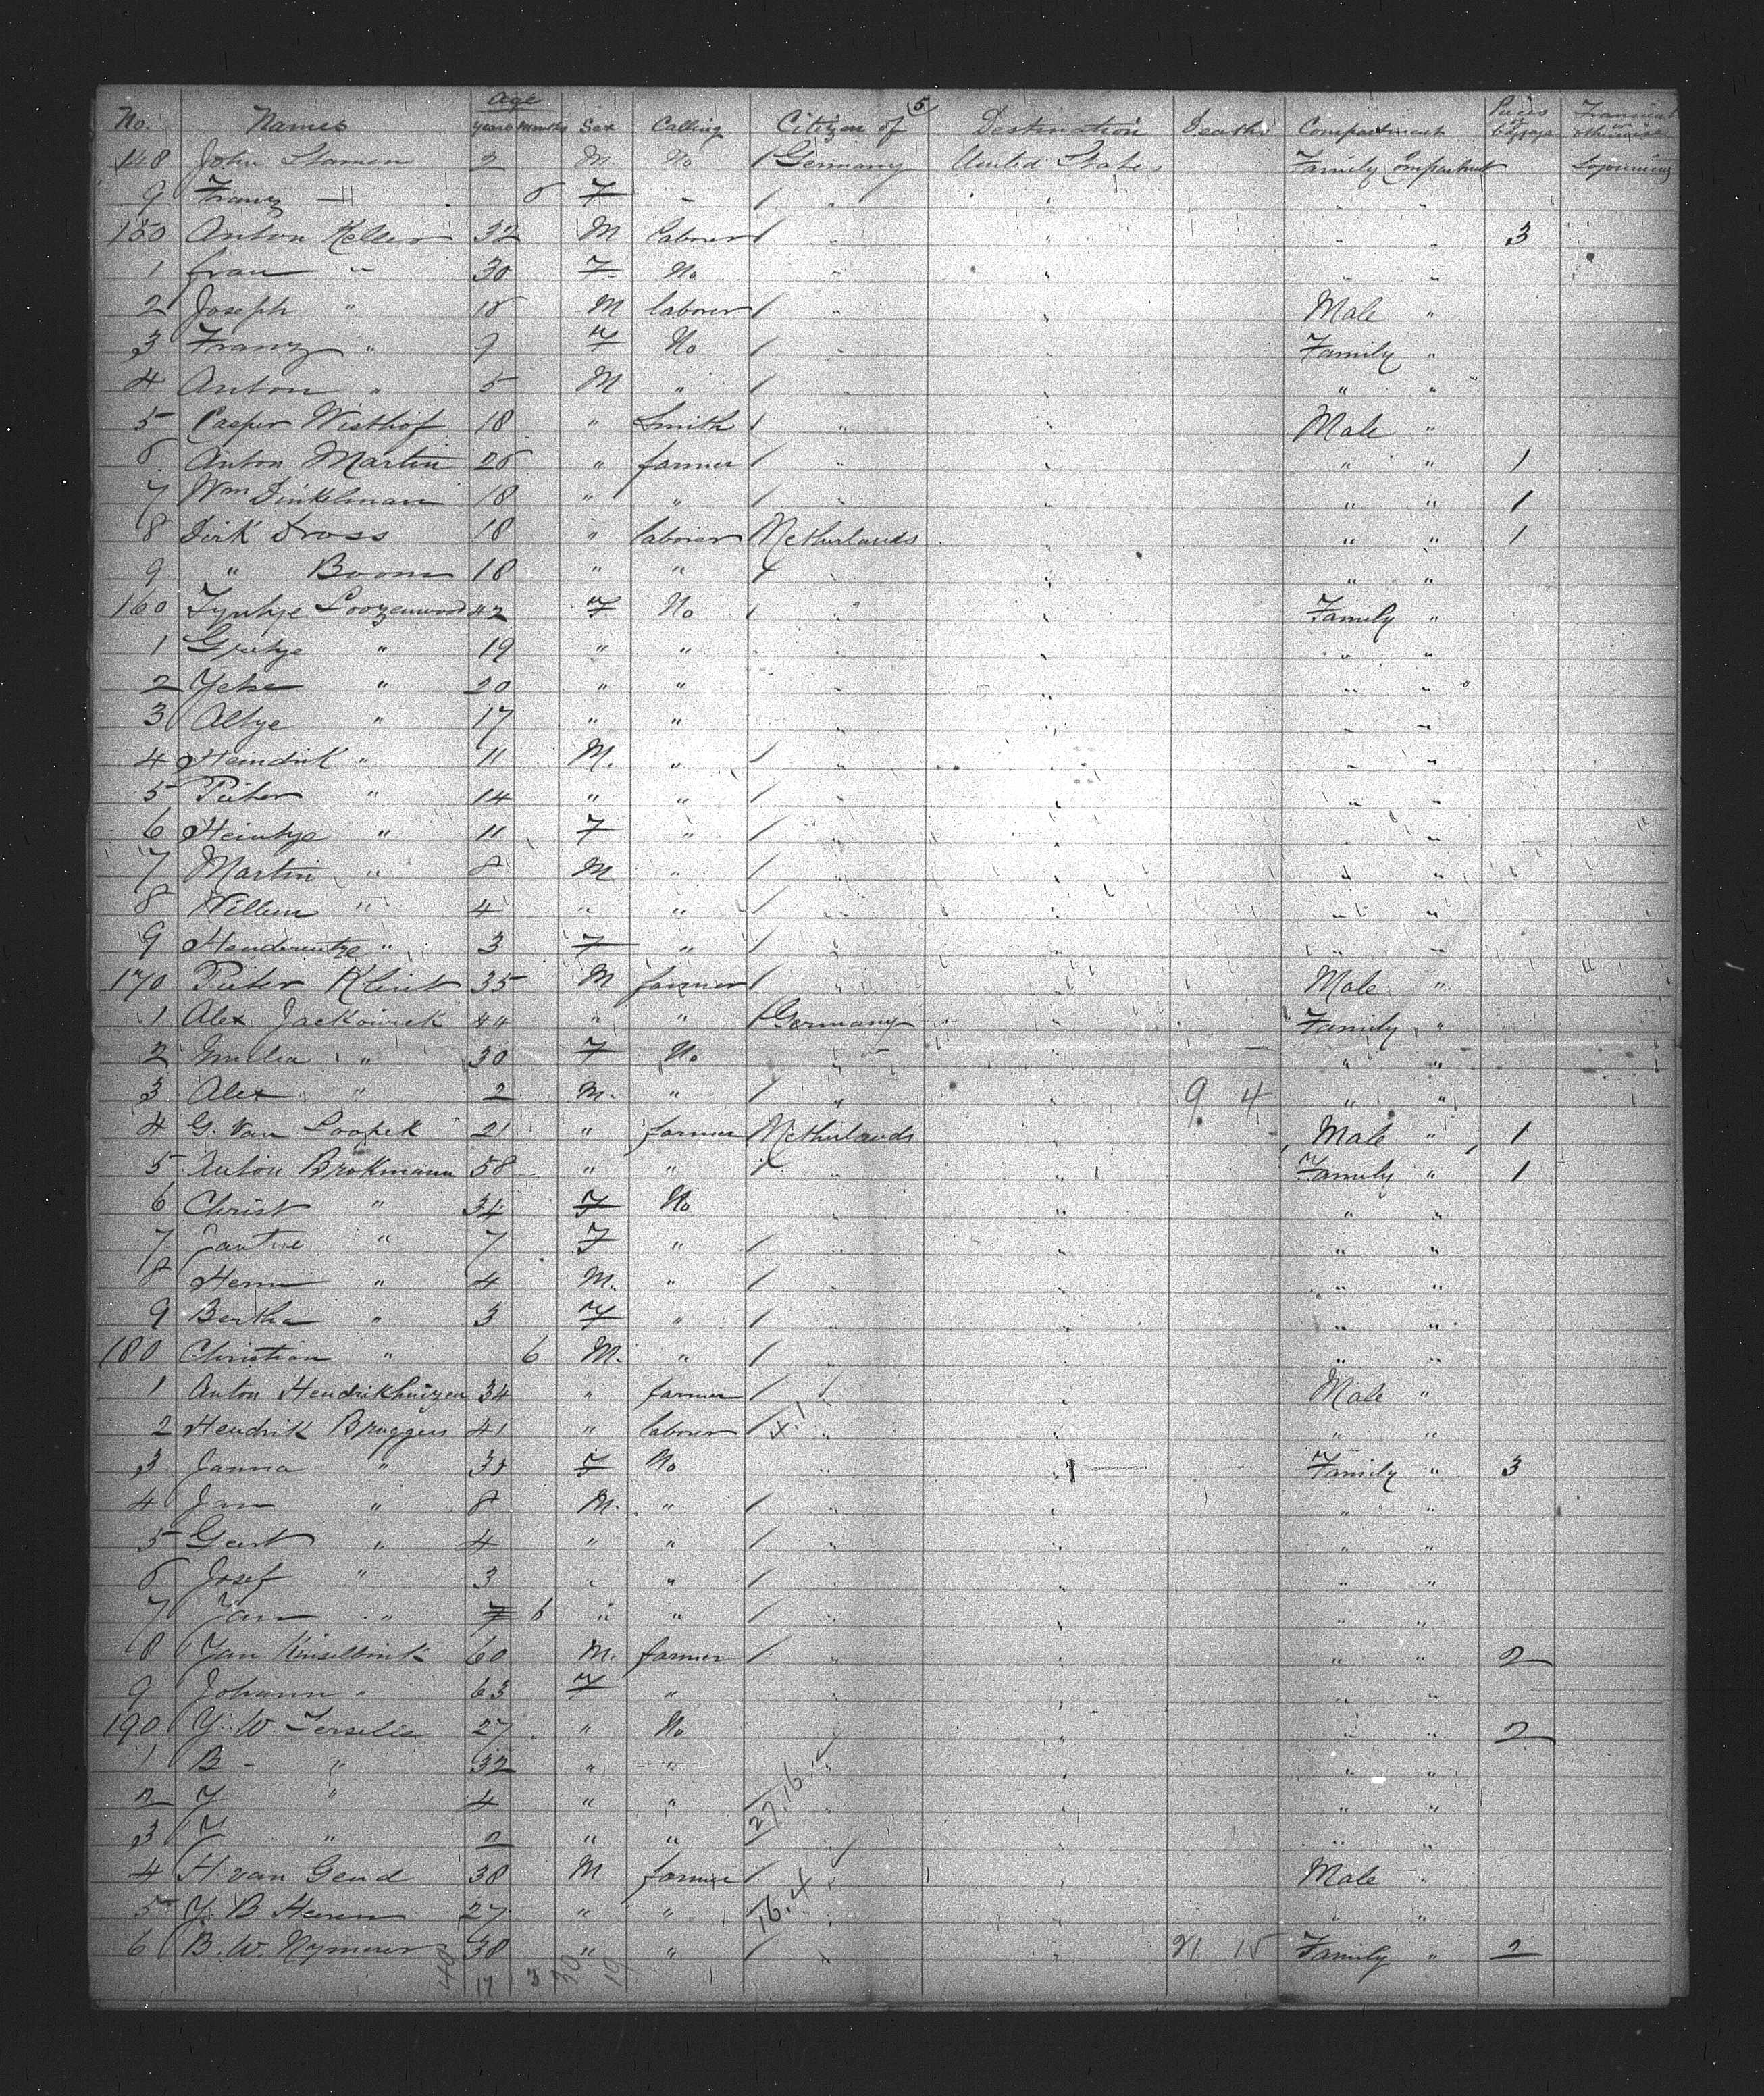 5
No. Names Age years months Sex Calling Citizen of Destination Deaths Compartment Pieces of baggage Transient otherwise
148 John Stamen 2 M. No / Germany United States Family Compartment Sojourning
9 Franz — 8 F - / " " " "
150 Anton Keller 32 M laborer / " " " " 3
1 frau " 30 F. No " " " "
2 Joseph " 18 M laborer / " " Male "
3 Franz " 9 F No / " " Family "
4 Anton " 5 M " / " " " "
5 Casper Wisthof 18 " Smith / " " Male "
6 Anton Martin 26 " farmer / " " " " 1
7 Wm Dinkelman 18 " " / " " " " 1
8 Dirk Dross 18 " laborer / Netherlands " " " 1
9 " Boom 18 " " / " " " "
160 Tyntye Loozenwood 42 F No / " " Family "
1 Grietye " 19 " " " " " "
2 Yetse " 20 " " " " " "
3 Altye " 17 " " " " " "
4 Heindrik " 11 M. " / " " " "
5 Pieter " 14 " " / " " " "
6 Heintye " 11 F " / " " " "
7 Martin " 8 M " / " " " "
8 Willem " 4 " " / " " " "
9 " 3 F " / " " " "
170 Pieter Klint 35 M farmer / " " Male "
1 Alex Jackowick 44 " " / Germany " Family "
2 Emilia " 30 F No " " " "
3 Alex " 2 M. " / " " 9 4 " "
4 G. Van 21 " farmer / Netherlands " Male " 1
5 Anton Brokmann 58 " " / " " Family " 1
6 Christ " 34 F No " " " "
7 " 7 F " / " " " "
8 Herm " 4 M. " / " " " "
9 Bertha " 3 F " / " " " "
180 Christian " 6 M. " / " " " "
1 Anton Hendrikhuizen 34 " farmer / " " Male "
2 Hendrik Bruggers 41 " laborer / x1 " " " "
3 Janna " F No " " Family " 3
4 Jan " 8 M. " / " " " "
5 Geert " 4 " " / " " " "
6 Josef " 3 " " / " " " "
7 Jan " 6 " " / " " " "
8 Jan 60 M. farmer / " " " " 2
9 Johann " 63 F " " " " "
190 Y. W. Terselie 27 " No " " " " 2
1 B - " 32 " " " " " "
2 Y " 4 " " / 27.16 " " " "
3 Y " 2 " " / " " " "
4 H van Gend 38 M farmer / " " Male "
5 Y B Heren 27 " " / 16.4 " " " "
6 B. W. Nymeier 38 " " / " " 21 15 Family " 2
40 17 3 30 19